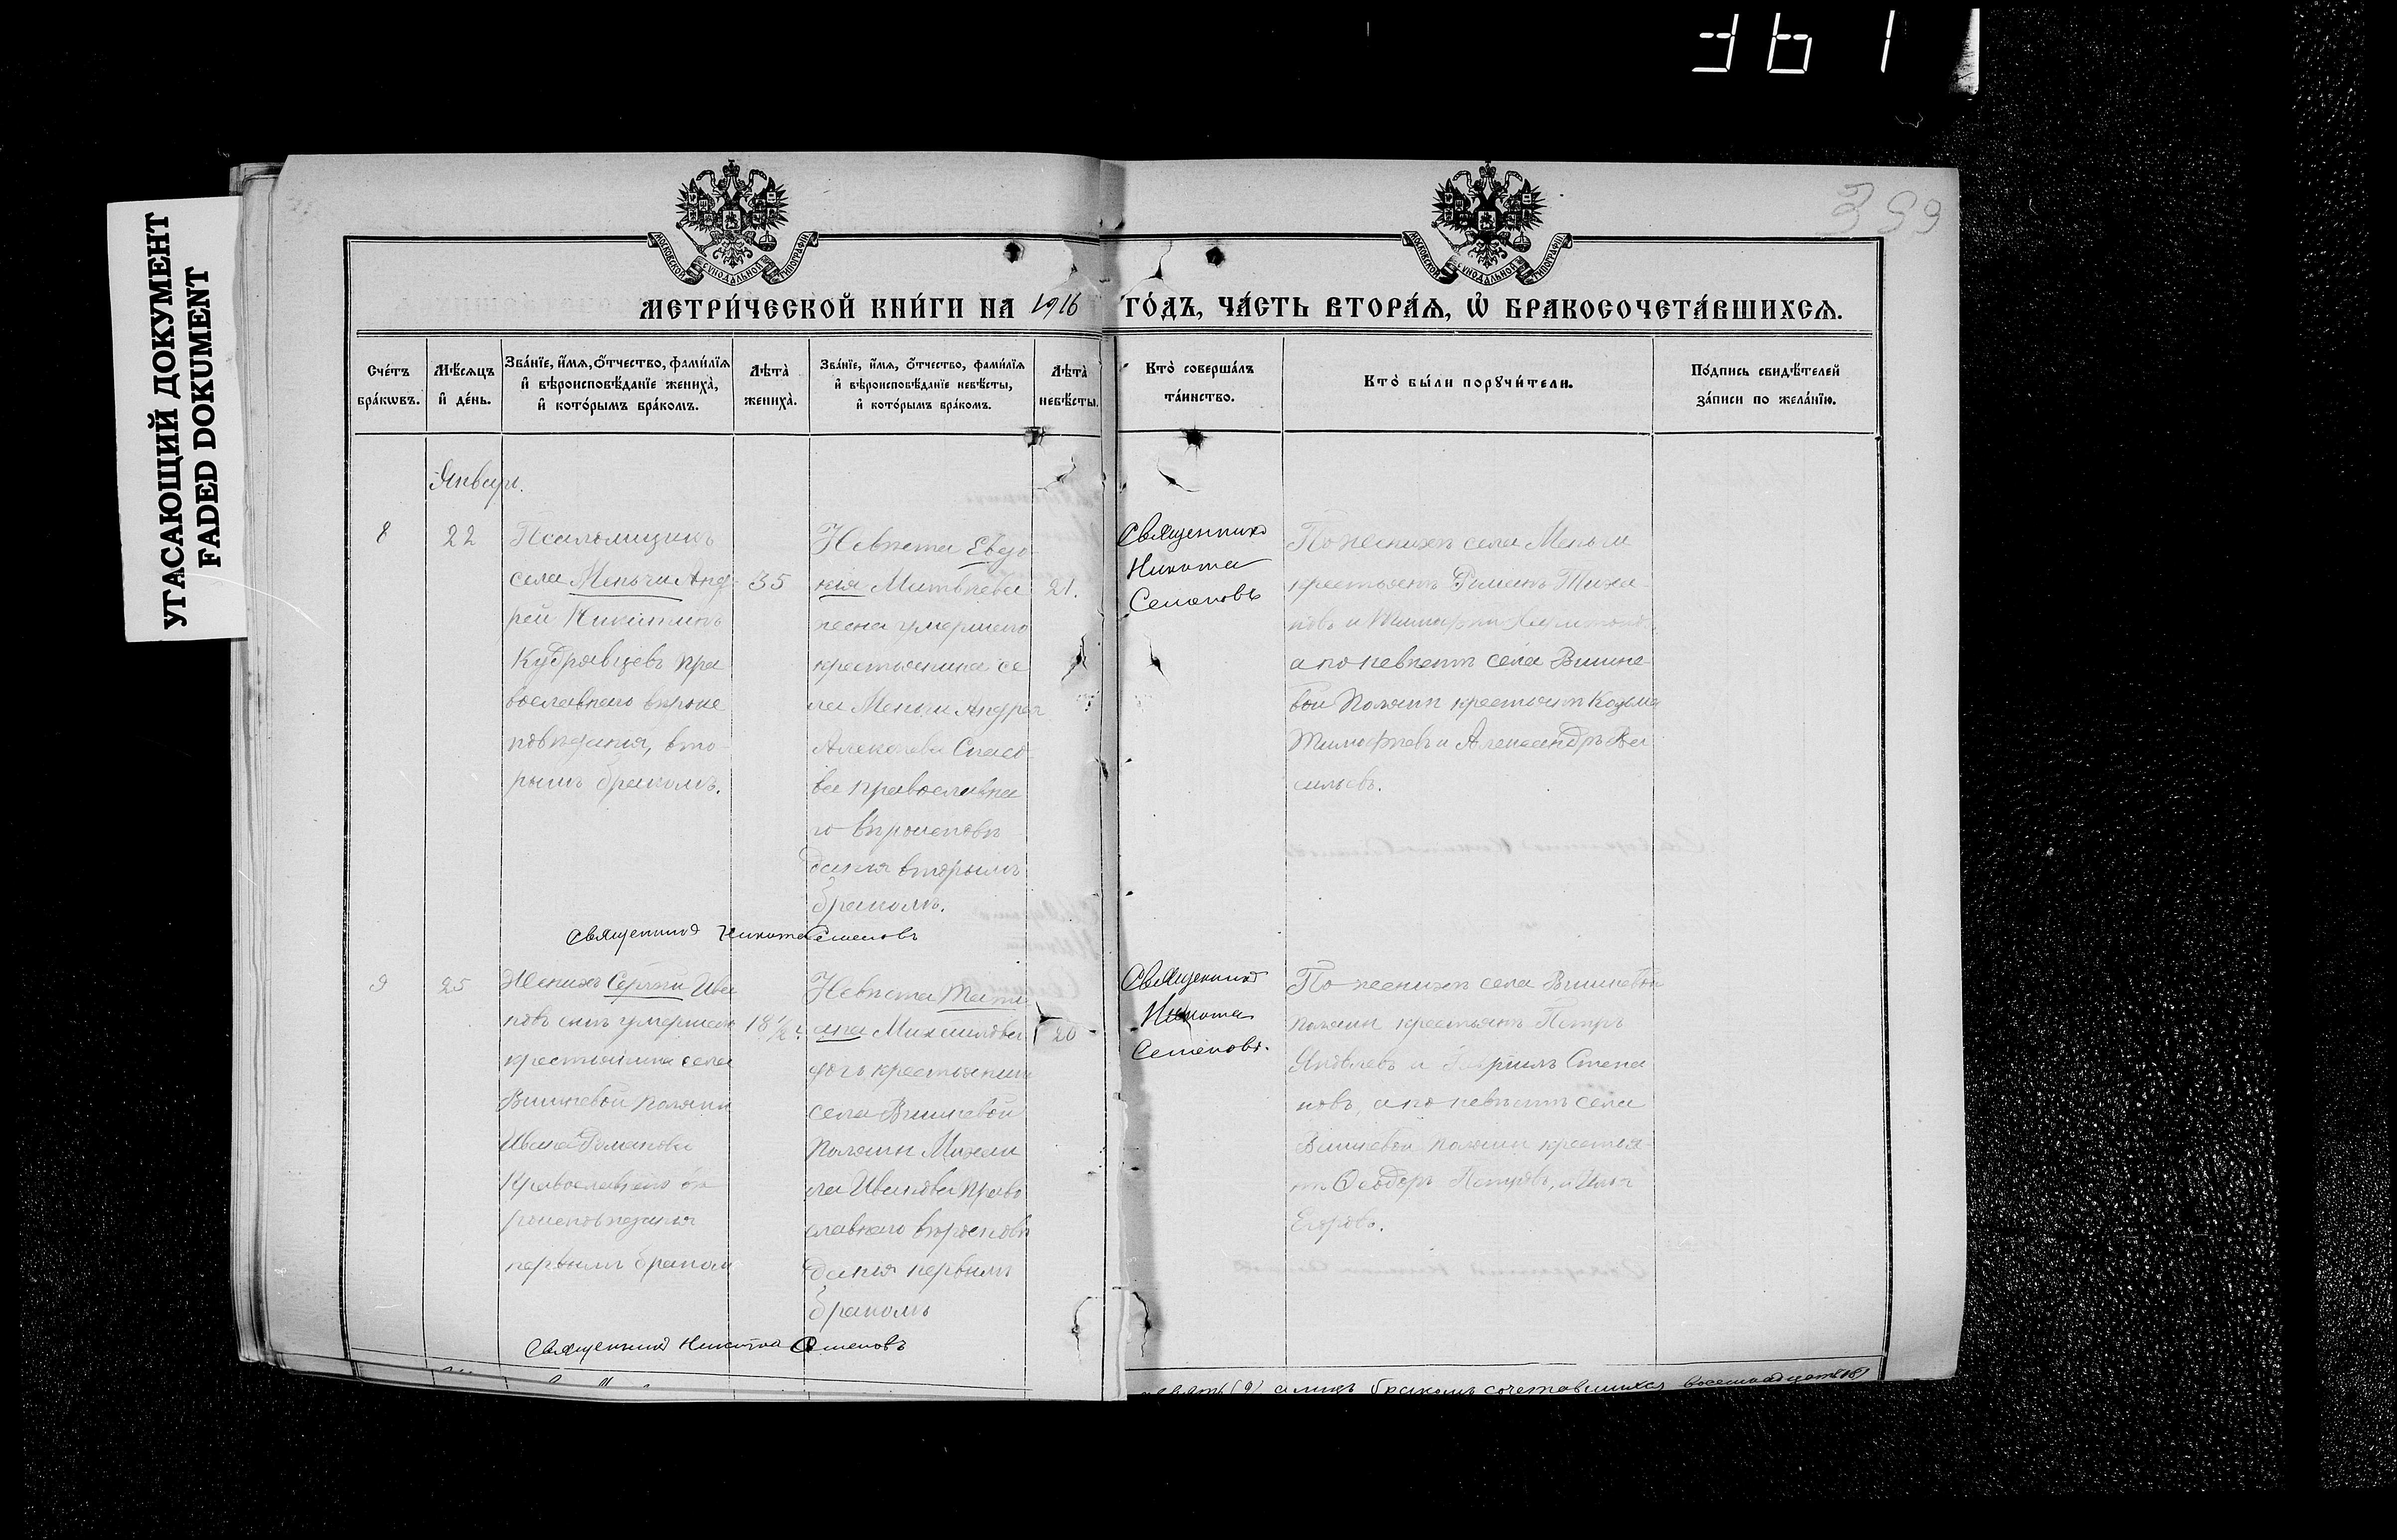 361
УГАСАЮЩИЙ ДОКУМЕНТ
FADED DOKUMENT
389
МОСКОВСКОЙ СѴНОДАЛЬНОЙ ТИПОГРАФІИ
МОСКОВСКОЙ СѴНОДАЛЬНОЙ ТИПОГРАФІИ
МЕТРИ́ЧЕСКОЙ КНИ́ГИ НА 1916 ГО́ДЪ, ЧА́СТЬ ВТОРА́Ѧ, Ѡ҆ БРАКОСОЧЕТА́ВШИХСѦ.
Сче́тъ бра́кѡвъ.
Мѣ́сяцъ и҆ де́нь.
Зва́нїе, и҆́мѧ, ѻ҆́тчество, фами́лїѧ
и҆ вѣроисповѣ́данїе жениха̀,
и҆ кото́рымъ бра́комъ.
Лѣта̀ жениха̀.
Зва́нїе, и҆́мѧ, ѻ҆́тчество, фами́лїѧ
и҆ вѣроисповѣ́данїе невѣ́сты,
и҆ кото́рымъ бра́комъ.
Лѣта̀ невѣ́сты.
Кто̀ соверша́лъ
та́инство.
Кто̀ бы́ли порꙋчи́тели.
По́дпись свидѣ́телей
за́писи по жела́нїю.
Январь.
8
22
Псаломщикъ
села Меньчи Анд-
рей Никитинъ
Кудрявцевъ пра
вославнаго вѣроис
повѣданія, вто-
рымъ бракомъ.
35
Невѣста Евдо-
кія Матвѣева
жена умершаго
крестьянина се
ла Меньчи Андрея
ва православна
го вѣроисповѣ
данія вторымъ
бракомъ.
21.
Священникъ
Никита
Семеновъ
По женихѣ села Меньчи
крестьяне Романъ Тиха-
новъ и
а по невѣстѣ села Вишне-
вой Поляны крестьяне Козьма
Тимофѣевъ и Александръ Ва
сильевъ.
Священникъ Никита Семеновъ
9
25
Женихъ Сергѣй Ива
новъ сынъ умершаго
крестьянина села
Вишневой Поляны
Ивана Романова
Православнаго вѣ
роисповѣданія
первымъ бракомъ
18 ½ г.
Невѣста Татья
на Михаилова
дочь крестьянина
села Вишневой
Поляны Михаи
ла Иванова Право
славнаго вѣроисповѣ
данія первымъ
бракомъ
20
Священникъ
Никита
Семеновъ.
По женихѣ села Вишневой
Поляны крестьяне Петръ
Яковлевъ и Гавріилъ Степа
новъ, а по невѣстѣ села
Вишневой Поляны крестья-
не Ѳеодоръ Петровъ, и Илья
Егоровъ.
Священникъ Никита Семеновъ
девять (9) а лицъ бракомъ сочетавшихся восемнадцать (18)